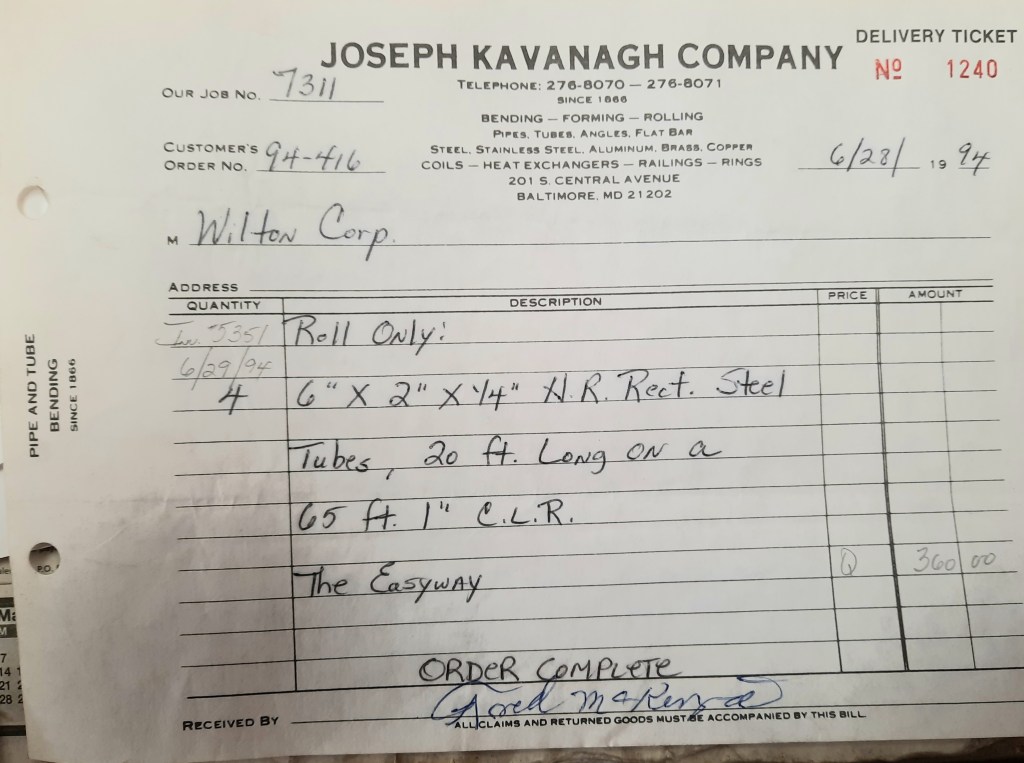 DELIVERY TICKET
JOSEPH KAVANAGH COMPANY
Nº 1240
OUR JOB NO. 7311
TELEPHONE: 276-8070 — 276-8071
SINCE 1866
BENDING — FORMING — ROLLING
PIPES, TUBES, ANGLES, FLAT BAR
STEEL, STAINLESS STEEL, ALUMINUM, BRASS, COPPER
COILS — HEAT EXCHANGERS — RAILINGS — RINGS
201 S. CENTRAL AVENUE
BALTIMORE, MD 21202
CUSTOMER'S
ORDER NO. 94-416
6/28/ 19 94
M Wilton Corp.
ADDRESS
QUANTITY DESCRIPTION PRICE AMOUNT
Inv. 5351 Roll Only:
6/29/94
4 6" X 2" X 1/4" H.R. Rect. Steel
Tubes, 20 ft. Long on a
65 ft. 1" C.L.R.
The Easyway Q 360 00
ORDER COMPLETE
RECEIVED BY
ALL CLAIMS AND RETURNED GOODS MUST BE ACCOMPANIED BY THIS BILL
PIPE AND TUBE
BENDING
SINCE 1866
P.O.
Ma
M
7
14 1
21 2
28 2